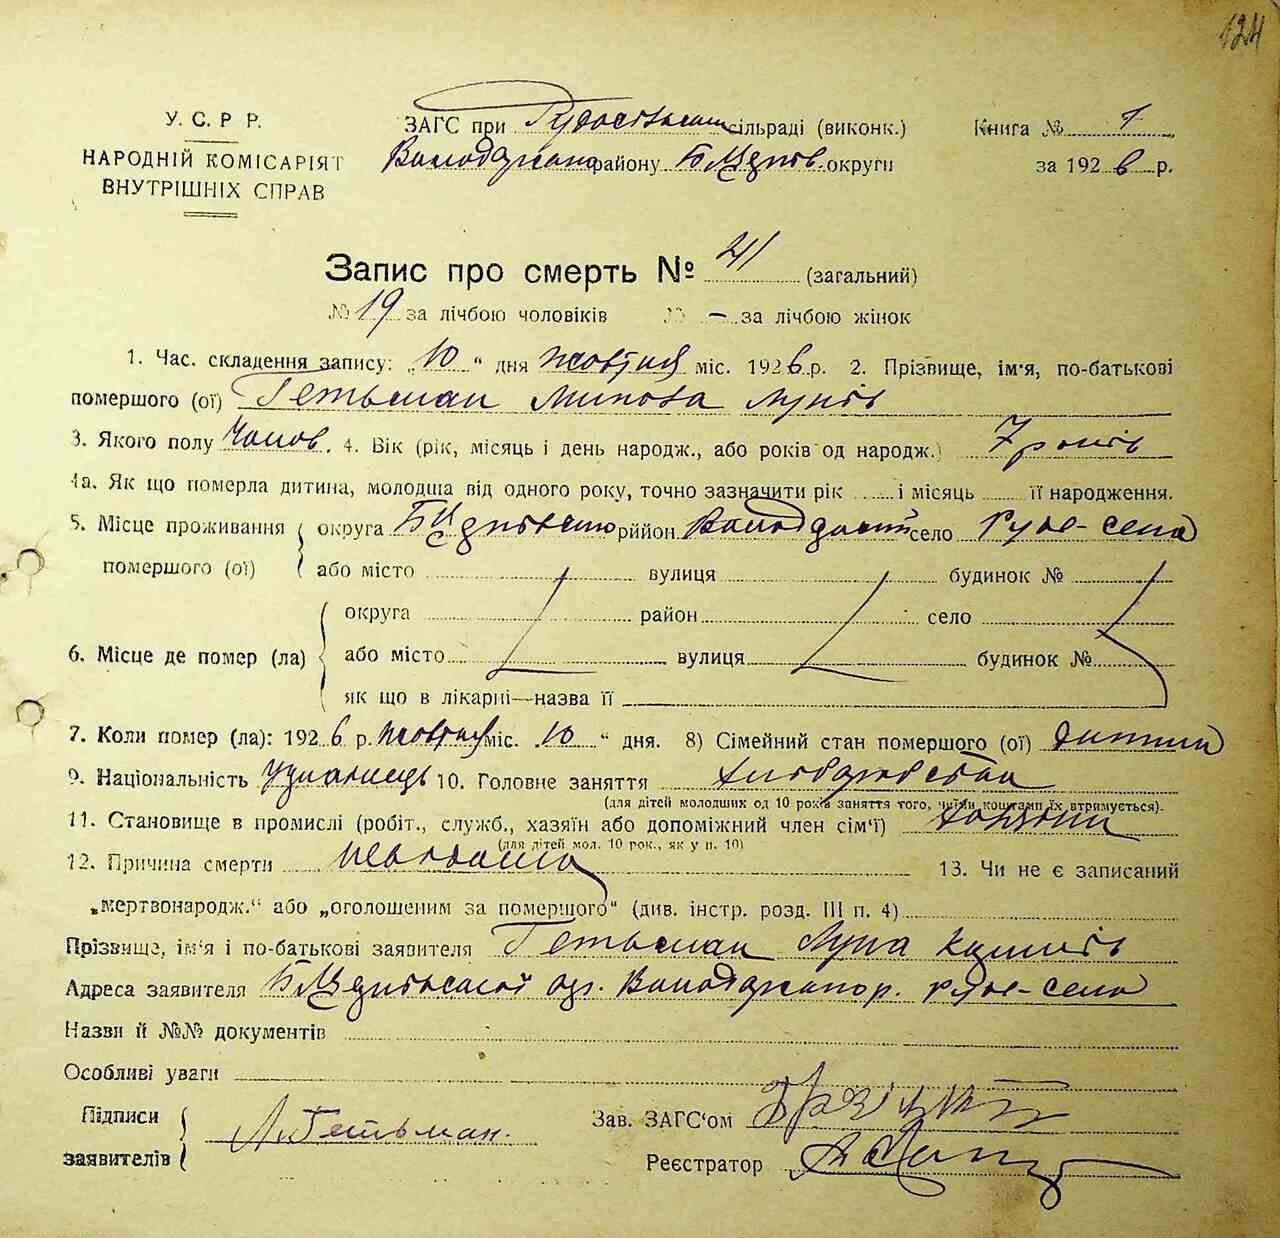 124
У. С. Р. Р.
НАРОДНІЙ КОМІСАРІЯТ
ВНУТРІШНІХ СПРАВ
ЗАГС при Рудосільськ сільраді (виконк.)
Володарськ району БЦерків. округи
Книга № 1
за 1926 р.
Запис про смерть № 41 (загальний)
№ 19 за лічбою чоловіків № – за лічбою жінок
1. Час. складення запису: „10“ дня жовтня міс. 1926 р. 2. Прізвище, ім'я, по-батькові
померщого (ої) Гетьман Микола Луків
3. Якого полу Чолов. 4. Вік (рік, місяць і день народж., або років од народж.) 7 років
4а. Як що померла дитина, молодша від одного року, точно зазначити рік і місяць її народження.
5. Місце проживання округа БЦерківсько рийон Володарськ село Рудо-село
померщого (ої) або місто вулиця будинок №
округа район село
6. Місце де помер (ла) або місто вулиця будинок №
як що в лікарні—назва її
7. Коли помер (ла): 1926 р. жовтня міс. 10 “ дня. 8) Сімейний стан померщого (ої) дитина
9. Національність Українець 10. Головне заняття хліборобство
(для дітей молодших од 10 років заняття того, чиїми коштами їх втримується).
11. Становище в промислі (робіт., служб., хазяїн або допоміжний член сім'ї) хазяїн
(для дітей мол. 10 рок., як у п. 10)
12. Причина смерти 13. Чи не є записаний
„мертвонародж.“ або „оголошеним за померщого“ (див. інстр. розд. III п. 4)
Прізвище, ім'я і по-батькові заявителя Гетьман Лука
Адреса заявителя БЦерківської окр. Володарського р. Рудо-село
Назви й №№ документів
Особливі уваги
Підписи
заявителів
Л. Гетьман.
Зав. ЗАГС'ом
Реєстратор